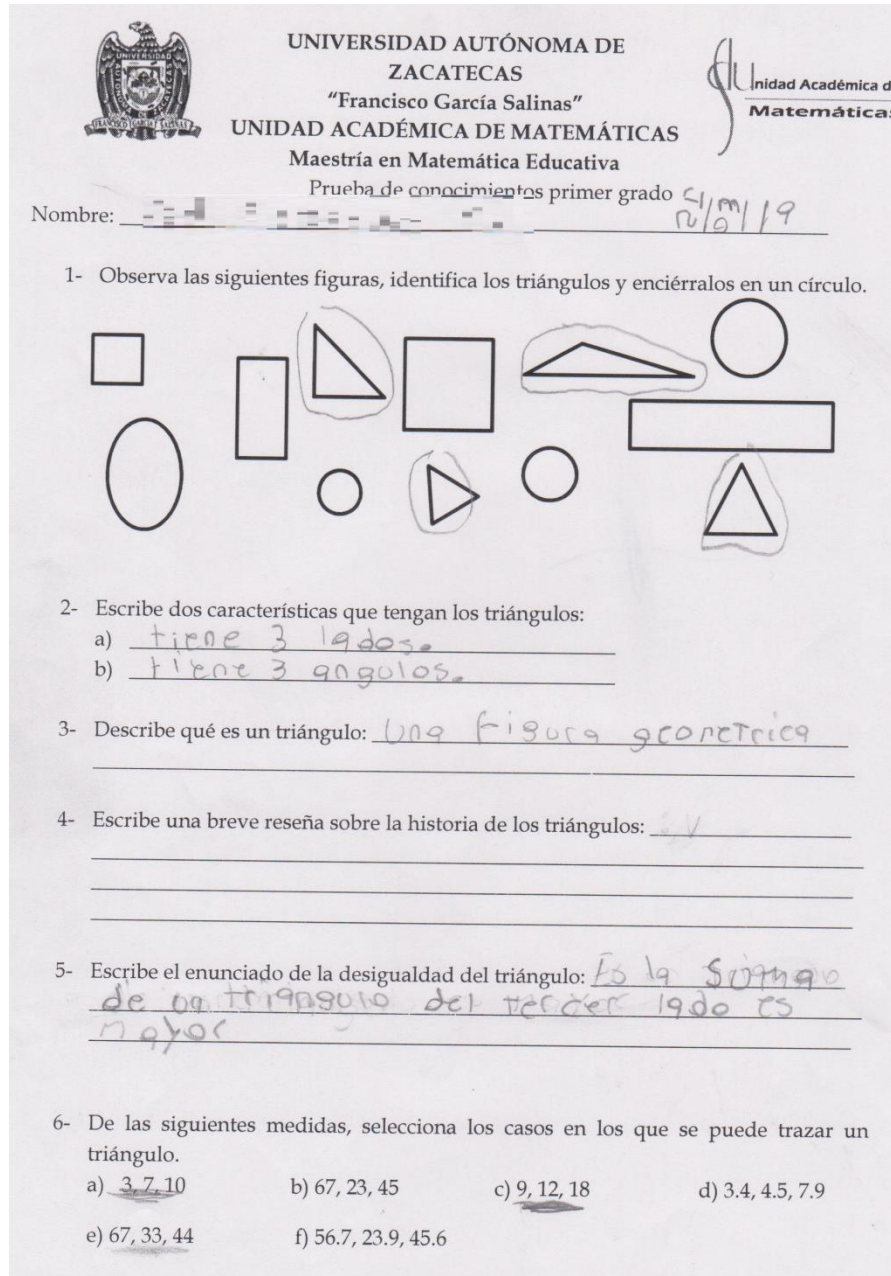 UNIVERSIDAD
UNIVERSIDAD AUTÓNOMA DE
ZACATECAS
"Francisco García Salinas"
UNIDAD ACADÉMICA DE MATEMÁTICAS
Maestría en Matemática Educativa
Unidad Académica d
Matemáticas
Prueba de conocimientos primer grado
Nombre:
1- Observa las siguientes figuras, identifica los triángulos y enciérralos en un círculo.
2- Escribe dos características que tengan los triángulos:
a) tiene 3 lados.
b) tiene 3 angulos.
3- Describe qué es un triángulo: Una figura geometrica
4- Escribe una breve reseña sobre la historia de los triángulos:
5- Escribe el enunciado de la desigualdad del triángulo: Es la suma
de un triangulo del tercer lado es
mayor
6- De las siguientes medidas, selecciona los casos en los que se puede trazar un
triángulo.
a) 3, 7, 10 b) 67, 23, 45 c) 9, 12, 18 d) 3.4, 4.5, 7.9
e) 67, 33, 44 f) 56.7, 23.9, 45.6